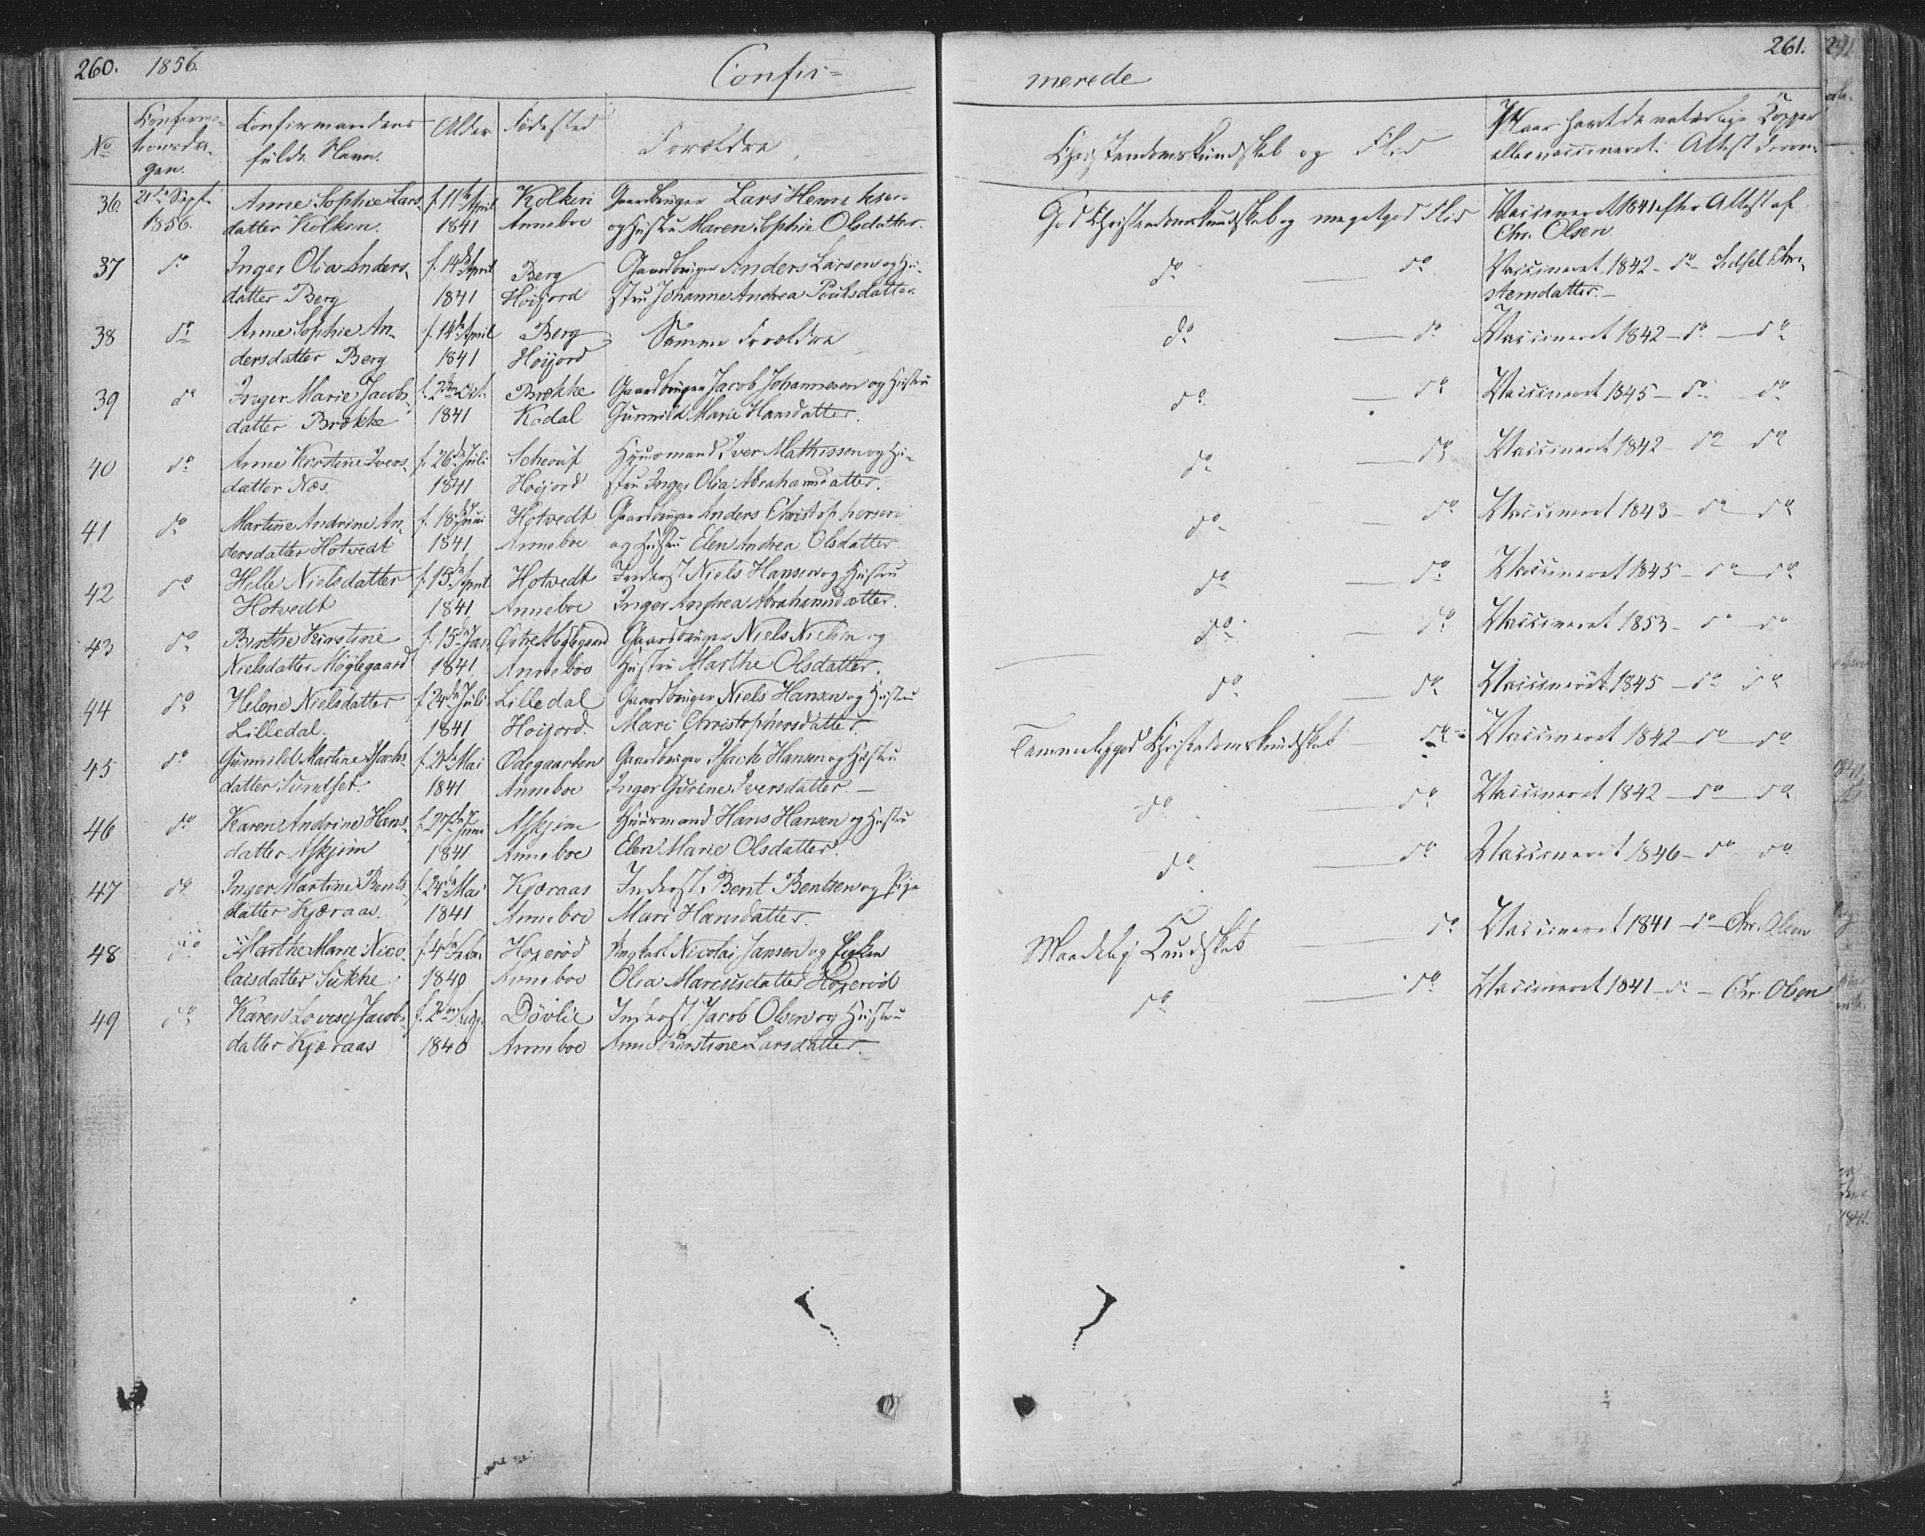 260. 1856. Confir=
No Confirma-
tionsda-
gen. Confirmandens
fulde Navn. Alder Fødested Forældre
36. 21de Sept. Anne Sophie Lars f. 11te April Kolkin Gaardbruger Lars Henriksen
1856. datter Kolken. 1841 Anneboe og Hustru Maren Sophie Olsdatter.
37 do Inger Olia Anders- f. 14de April Berg Gaardbruger Anders Larsen og Hu-
datter Berg 1841 Høijord stru Johanne Andrea Poulsdatter
38 do Anne Sophie An- f. 14de April Berg Samme Forældre
dersdatter Berg 1841 Høijord
39 do Inger Marie Jacobs- f. 2den Oct. Brekke Gaardbruger Jacob Johannesen og Hustru
datter Brekke 1841 Kodal Gunnild Marie Hansdatter.
40 do Anne Kirstine Ivers- f. 26de Juli Huusmand Iver Mathissen og Hu-
datter Næs. 1841 Høijord stru Inger Olia Abrahamsdatter.
41 do Martine Andrine An- f. 18de Juni Hotvedt Gaardbruger Anders Christophersen
dersdatter Hotvedt 1841 Anneboe og Hustru Elen Andrea Olsdatter
42 do Helle Nielsdatter f. 15de April Hotvedt Inderst Niels Hansen og Hustru
Hotvedt 1841 Anneboe Inger Andrea Abrahamsdatter.
43 do Birthe Kirstine f. 15de Jan. Østre Møglegaard Gaardbruger Niels Nielsen og
Nielsdatter Møglegaard 1841 Anneboe Hustru Marthe Olsdatter.
44 do Helene Nielsdatter f. 24de Juli Lilledal Gaardbruger Niels Hansen og Hustru
Lilledal. 1841 Høijord. Mari Christophersdatter.
45 do Gunnild Martine Isacks- Mai Ødegaarden Gaardbruger Isack Hansen og Hustru
datter Sundset. 1841 Anneboe Inger Gurine Iversdatter.
46 do Karen Andrine Hans- f. 27de Juni Askjem Huusmand Hans Hansen og Hustru
datter Askjem 1841 Anneboe Elen Marie Olsdatter.
47 do Inger Martine Bents- f. 24de Mai Kjæraas Inderst Bent Bentsen og Pige
datter Kjæraas. 1841 Anneboe Mari Hansdatter.
48 do Marthe Marie Nico- f. 4de Hoxerød Ungkarl Nicolai Jansen og Enken
laisdatter Sukke 1840 Anneboe Olia Mariusdatter Hoxerød
49 do Karen Lovise Jacobs- f. 2den Døvlie Inderst Jacob Olsen og Hustru
datter Kjæraas 1840 Anneboe Anne Kirstine Larsdatter.
merede 261.
Christendomskundskab og Flid Naar havt de naturlige Kopper
eller vaccineret. Attest
God Christendomskundskab og megetgod Flid Vaccineret 1841 efter Attest af
Chr. Olsen.
do — do Vaccineret 1842 – do Sidsel Chri-
stensdatter.–
do — do Vaccineret 1842 – do – do
do — do Vaccineret 1845 – do – do
do — do Vaccineret 1842 – do do
do do Vaccineret 1843 – do – do
do — do Vaccineret 1845 – do – do
do — do Vaccineret 1853 – do – do
do — do Vaccineret 1845 – do do
Temmeliggod Christendomskundskab — do Vaccineret 1842 – do – do
do — do Vaccineret 1842 – do – do
do — do Vaccineret 1846 – do do
Maadelig Kundskab — do Vaccineret 1841 – do – Chr. Olsen
do — do Vaccineret 1841 – do – Chr. Olsen